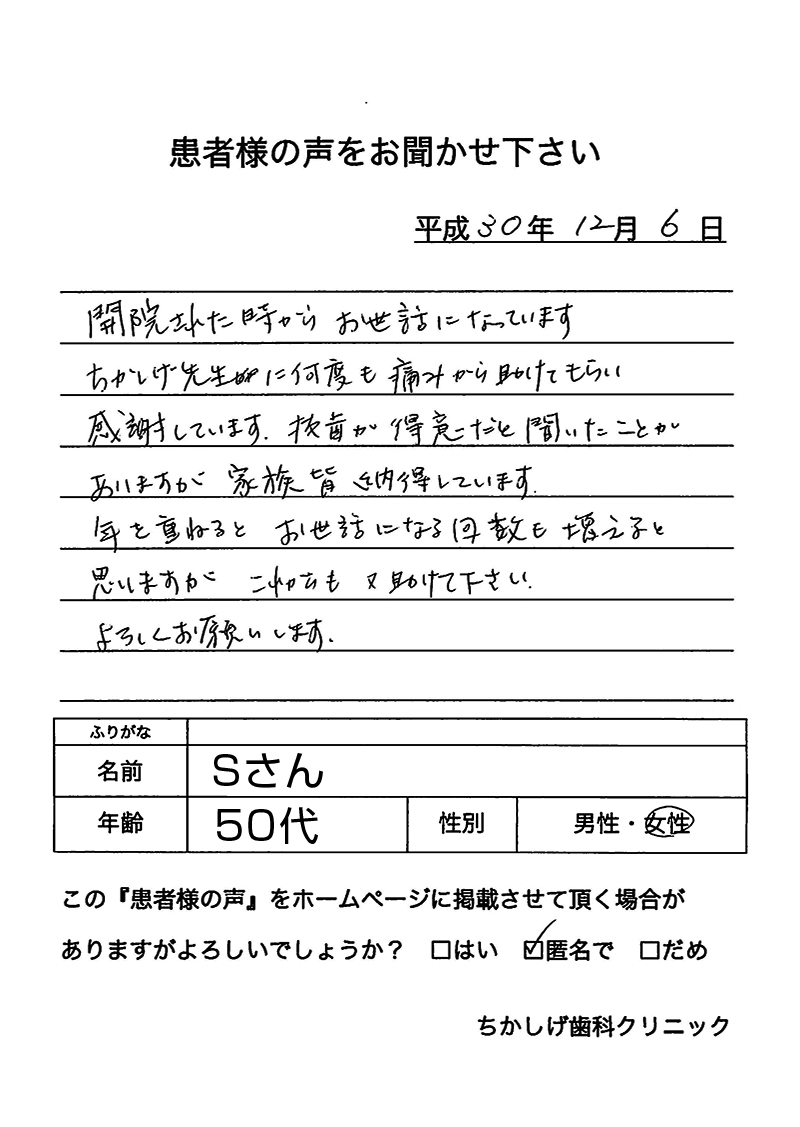 患者様の声をお聞かせ下さい
平成30年 12月 6日
開院された時から お世話になっています
ちかしげ先生に何度も 痛みから助けてもらい
感謝しています。抜歯が 得意だと 聞いたことが
ありますが 家族皆 納得しています。
年を重ねると お世話になる回数も 増えると
思いますが これからも 又助けて下さい。
よろしくお願いします。
ふりがな
名前 Sさん
年齢 50代 性別 男性・女性
この『患者様の声』をホームページに掲載させて頂く場合が
ありますがよろしいでしょうか？ □はい ☑匿名で □だめ
ちかしげ歯科クリニック